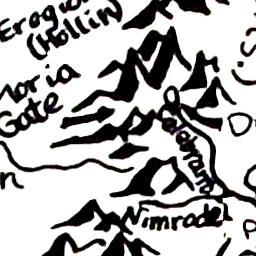 Eregion
(Hollin)
Moria
Gate
Celebrant
Nimrodel